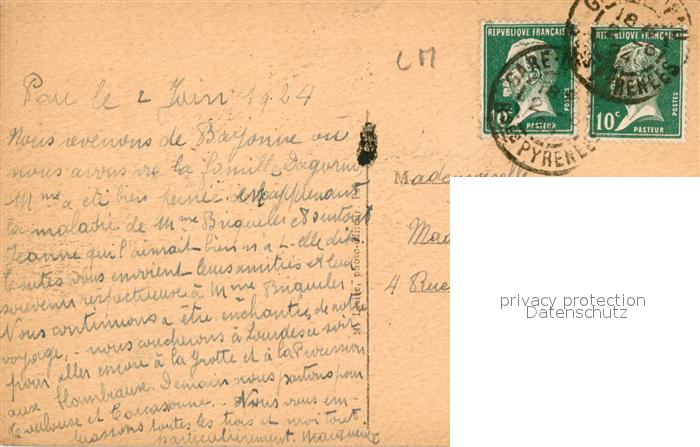 LM
REPVBLIQUE FRANÇAISE
POSTES
PASTEUR
REPVBLIQUE FRANÇAISE
10c
POSTES
PASTEUR
PYRENEES
PYRENEES
Pau le 2 Juin 1924
Nous revenons de Bayonne où
nous avons vu la famille Dagorno
Mme a été bien peinée en apprenant
la maladie de Mme Briqueler et surtout
Jeanne qui l'aimait bien m'a-t-elle dit
toutes vous envoient leurs amitiés et leur
souvenir respectueux à Mme Briqueler.
Nous continuons a être enchantées de notre
voyage, - nous coucherons à Lourdes ce soir
pour aller encore à la Grotte et à la Procession
aux flambeaux. Demain nous partons pour
Toulouse et Carcassonne. - Nous vous em-
brassons toutes les trois et moi tout
particulièrement
Mademoiselle
Mad
4 Rue
privacy protection
Datenschutz